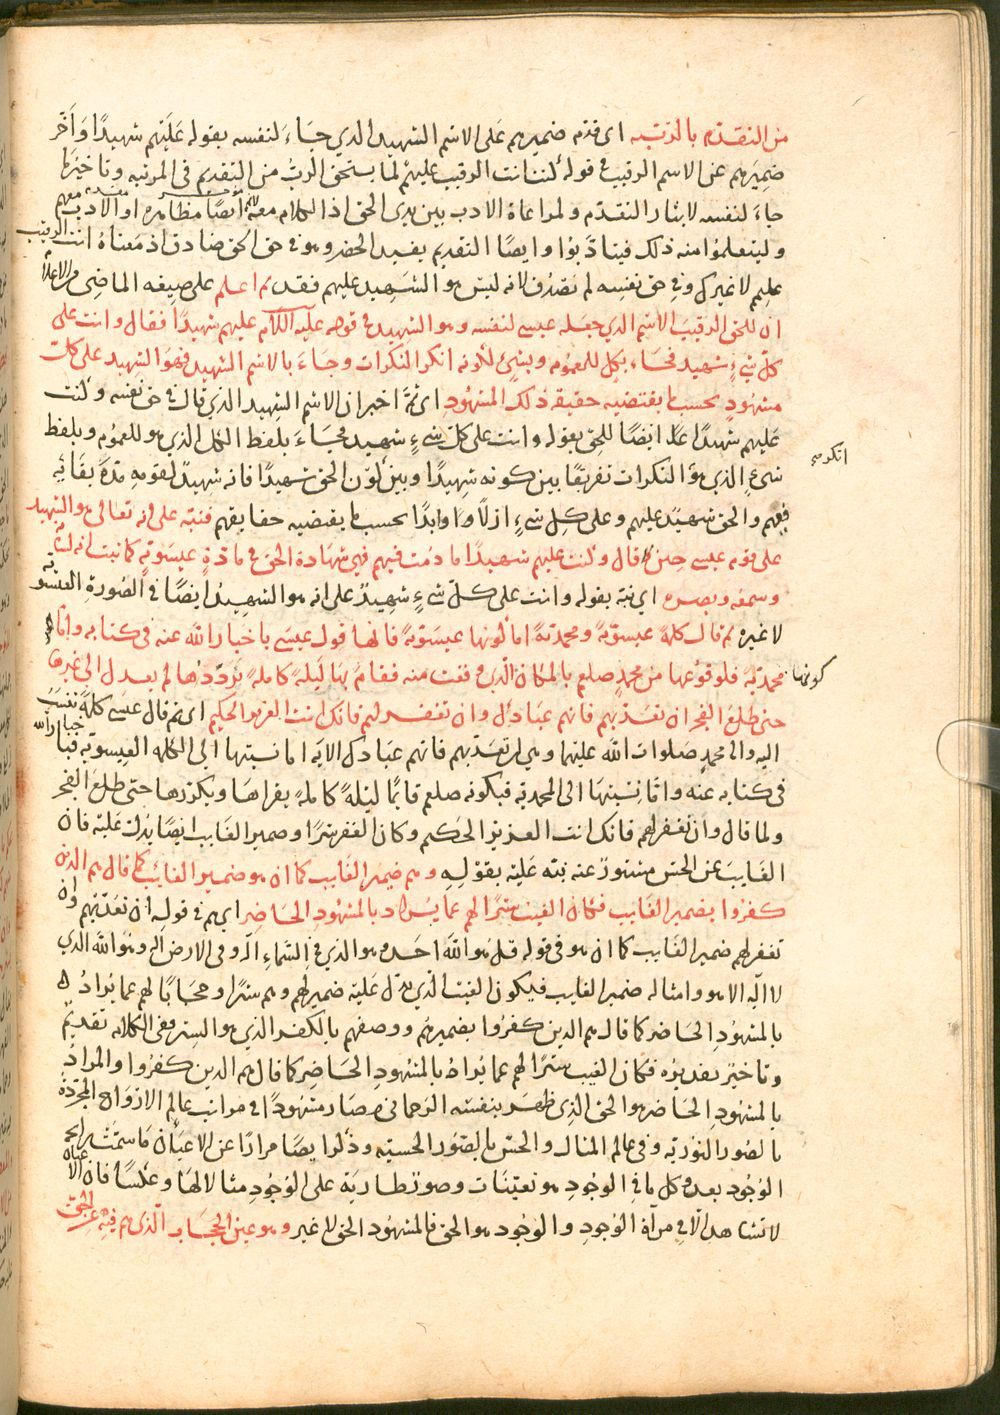 من التقدّم بالرتبه اى قدّم ضميرهم على الاسم الشهيد الذي جاءَ لنفسه بقوله عَلَيهم شهيدًا وَاَخَّر
ضميرهم عن الاسم الرقيب في قوله كنت انت الرقيب عليهم لما يستحق الربّ من التقديم فى المرتبه وتاخيرها
جاءَ لنفسه لايثار التقدّم ولمراعاة الادب بين يدى الحق اذ الكلام معه ايضًا مظاهره او الادب معهم
وليتعلموا منه ذلك فيتادّبوا وايضًا التقديم يفيد الحصر وهو في حق الحق صادق اذ معناهُ انت الرقيب
عليهم لا غيرك وفي حق نفسه لم تصدُق لانه ليس هو الشهيد عليهم فقد ثم اعلم على صيغه الماضى من الاعلام
ان للحق الرقيبَ الاسم الذي جعله عيسى لنفسه وهو الشهيد في قوله عليه السلام عليهم شهيدًا فقال وانت على
كلّ شيءٍ شهيد فجاءَ بكل للعموم وبشيْءٍ لكونه انكر النكرات وجاءَ بالاسم الشهيد فهو الشهيد على كلّ
مشهُودٍ بحسب ما يقتضيه حقيقه ذلك المشهُودِ اى ثمّ اخبر ان الاسم الشهيد الذي قال في حق نفسه وكنت
عَليهم شهيدًا عامّ ايضًا للحق بقوله وانت على كلّ شيءٍ شهيد فجاءَ بلفظ الكل الذي هو للعموم وبلفظ
انكر من
شيءٍ الذي هوَ النكرات تفريقًا بين كونه شهيدًا وبين كون الحق شهيدًا فانه شهيدٌ لقومهِ مدّةَ بقائه
فيهم والحق شهيدٌ عليهم وعلى كلّ شيءٍ ازلًا وَابدًا بحسب ما يقتضيه حقايقهم فنبّه على انه تعالى هو الشهيد
على قوم عيسى حين قال وكنت عليهم شهيدًا ما دمت فيهم فهي شهادة الحق في مادّةٍ عيسويّهٍ كما ثبت انه لسانه
وسمعه وبصره اى نبّه بقوله وانت على كلّ شيءٍ شهيدٌ على انه هو الشهيد ايضًا في الصورة العيسويّه
لا غيره ثم قال كلمةً عيسويّهً ومحمديّهً امّا كونها عيسويّهً فانها قول عيسى باخبار الله عنه فى كتابه وامّا
كونها
محمديّهً فلوقوعها من محمدٍ صلعم بالمكان الذي وقعت منه فقامَ بها ليلهً كاملهً يردّدُها لم يعدل الى غيرها
حتى طلع الفجر ان تعذّبهم فانهم عبادك وان تغفر لهم فانك انت العزيز الحكيم اى ثم قال عيسى كلمةً نُسبت
اليه والى محمدٍ صلوات الله عليهما وهي ان تعذّبهم فانهم عبادك الايه اما نسبتها الى الكلمه العيسويّه فباخبار الله
في كتابه عنه وامّا نسبتها الى المحمديّه فبكونه صلعم قايمًا ليلةً كاملهً يقراها ويكرّرها حتى طلعَ الفجر
ولما قال وان تغفر لهم فانك انت العزيز الحكيم وكان الغفر سترًا وضمير الغايب ايضًا يدلّ عليه فان
الغايبَ عن الحسّ مستورٌ عنه نبّه عَليه بقوله وهم ضمير الغايب كما ان هو ضمير الغايب كما قال هم الذين
كفروا بضمير الغايب فكان الغيب سترًا لهم عما يُراد بالمشهُود الحاضر اى هم في قوله ان تعذّبهم وان
تغفر لهم ضمير الغايب كما ان هو فى قوله قل هو الله احد وهو الذي في السّماءِ الهٌ وفى الارض الهٌ وهوَ الله الذي
لا اله الا هو وامثاله ضمير الغايب فيكون الغيب الذي يدلّ عليه ضميرهُم وهم سترًا وحجابًا لهم عما يُرادُ
بالمشهُود الحاضر كما قال هم الذين كفرُوا بضميرهم ووصفهم بالكفر الذي هو الستر وفى الكلام تقديمٌ
وتاخيرٌ تقديره فكان الغيب سترًا لهم عما يرادُ بالمشهُود الحاضر كما قال هم الذين كفروا والمراد
بالمشهودِ الحاضر هو الحق الذِي ظهرَ بنفسه الرحمانى وصار مشهودًا في مراتب عالم الارواح المجرّدة
بالصُور النوريّه وفي عالم المثال والحسّ بالصور الحسيّه وذُكر ايضًا مرارًا عن الاعيان ما شمّت رايحة
الوجُود بعد وكل ما في الوجودِ هو تعيّنات وصور طارية على الوُجودِ مثالًا لها وعكسًا فان الاعيان
لا تشاهد الّا في مرآة الوجودِ والوجُود هو الحق فالمشهُود الحق لا غير وهو عين الحجاب الذى هم فيه عن الحقّ